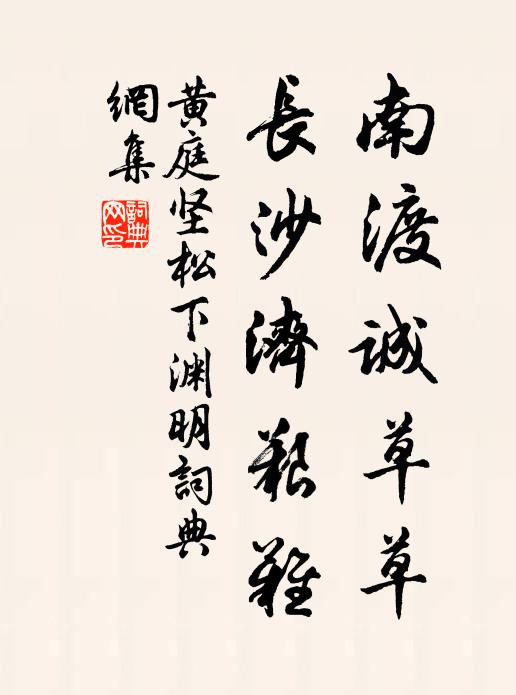 南渡誠草草
長沙濟艱難
黄庭坚松下渊明詞典
網集
詞典
网印